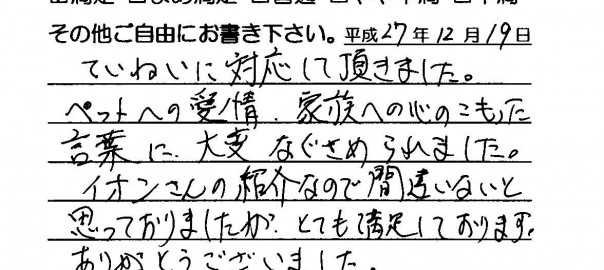 その他ご自由にお書き下さい。平成27年12月19日
ていねいに対応して頂きました。
ペットへの愛情、家族への心のこもった
言葉に、大変なぐさめられました。
イオンさんの紹介なので間違いないと
思っておりましたが、とても満足しております。
ありがとうございました。